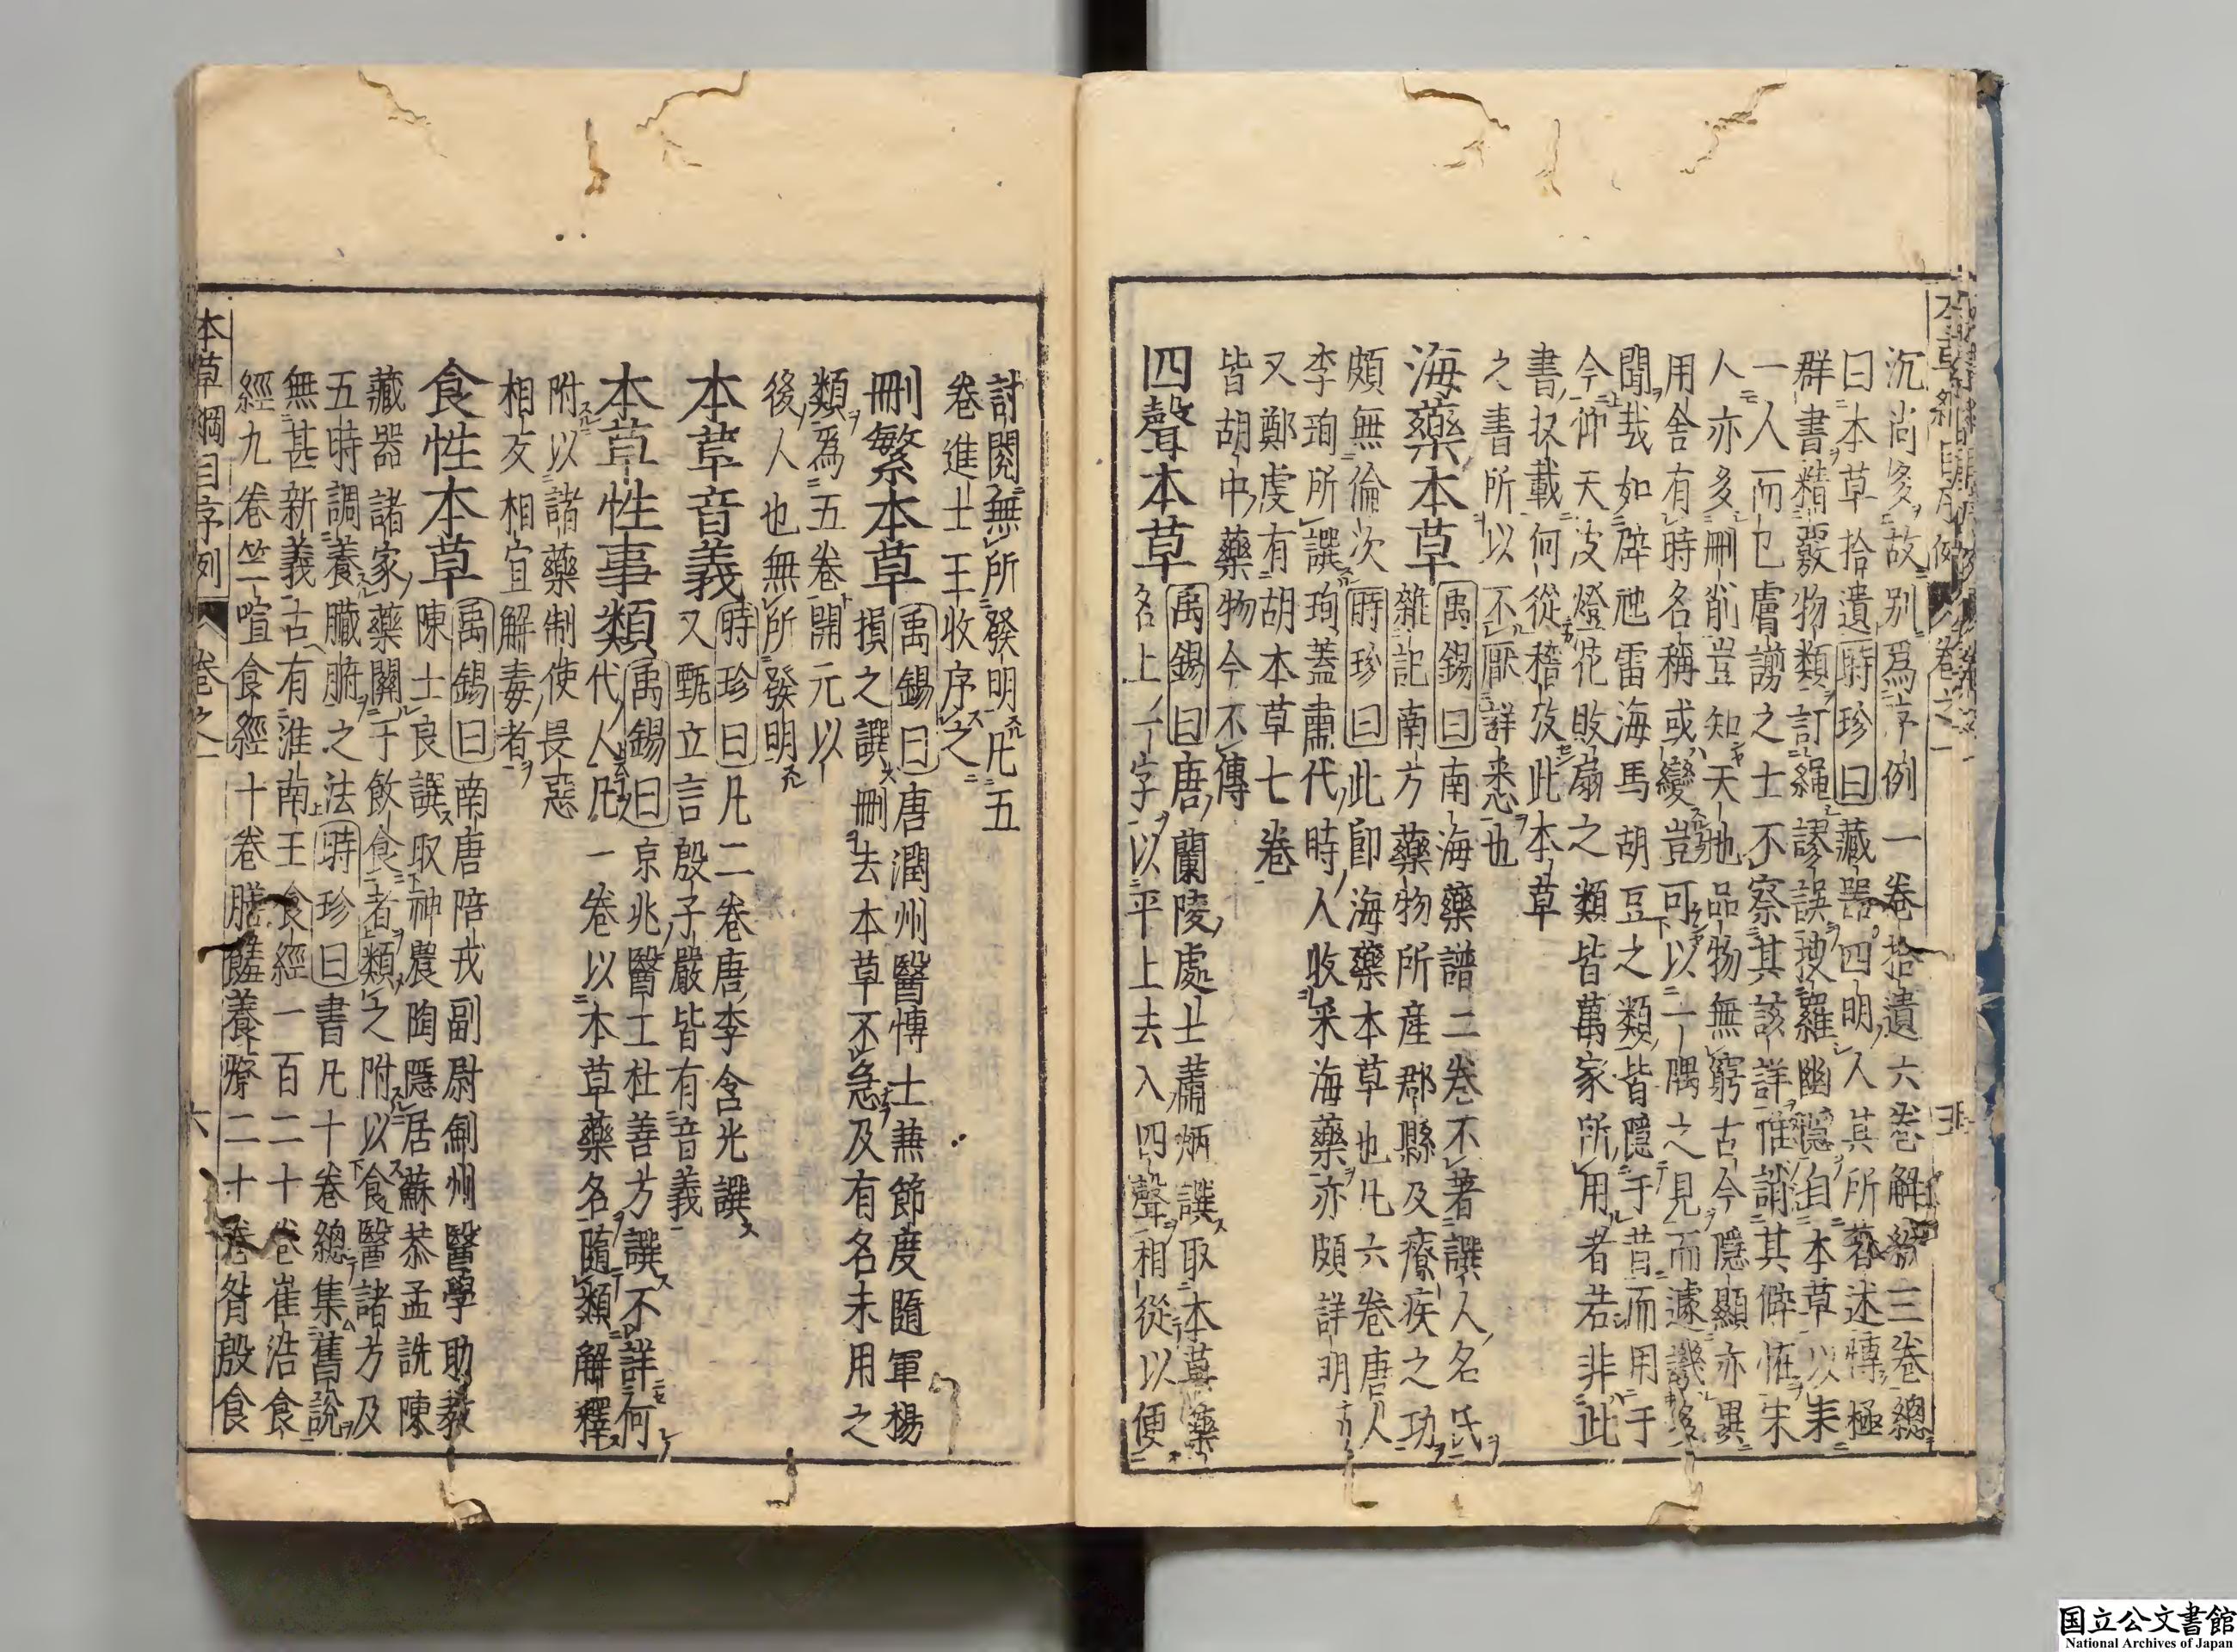 本草綱目序例 卷之一
沉尚多故别爲序例一卷拾遺六卷解紛三卷總
曰本草拾遺時珍曰藏器四明人其所著述博極
群書精覈物類訂繩謬誤搜羅幽隱自本草以来
一人而已膚謭之士不察其該詳惟誚其僻怪宋
人亦多刪削豈知天地品物無窮古今隱顯亦異
用舍有時名稱或變豈可以一隅之見而遽譏多
聞哉如辟虺雷海馬胡豆之類皆隱于昔而用于
今仰天皮燈花敗扇之類皆萬家所用者若非此
書収載何從稽攷此本草
之書所以不厭詳悉也
海藥本草禹錫曰南海藥譜二卷不著譔人名氏
雜記南方藥物所産郡縣及療疾之功
頗無倫次時珍曰此即海藥本草也凡六卷唐人
李珣所譔珣蓋肅代時人收采海藥亦頗詳明
又鄭虔有胡本草七卷
皆胡中藥物今不傳
四聲本草禹錫曰唐蘭陵處士蕭炳譔取本草藥
名上一字以平上去入四聲相從以便
討閲無所發明凡五
卷進士王收序之
刪繁本草禹錫曰唐潤州醫博士兼節度隨軍楊
損之譔刪去本草不急及有名未用之
類爲五卷開元以
後人也無所發明
本草音義時珍曰凡二卷唐李含光譔
又甄立言殷子嚴皆有音義
本草性事類禹錫曰京兆醫工杜善方譔不詳何
代人凡一卷以本草藥名隨類解釋
附以諸藥制使畏惡
相反相宜解毒者
食性本草禹錫曰南唐陪戎副尉劍州醫學助教
陳士良譔取神農陶隱居蘇恭孟詵陳
藏器諸家藥關于飲食者類之附以食醫諸方及
五時調養臟腑之法時珍曰書凡十卷總集舊說
無甚新義古有淮南王食經一百二十卷崔浩食
經九卷竺暄食經十卷膳羞養療二十卷昝殷食
本草綱目序例 卷之一 六
国立公文書館
National Archives of Japan